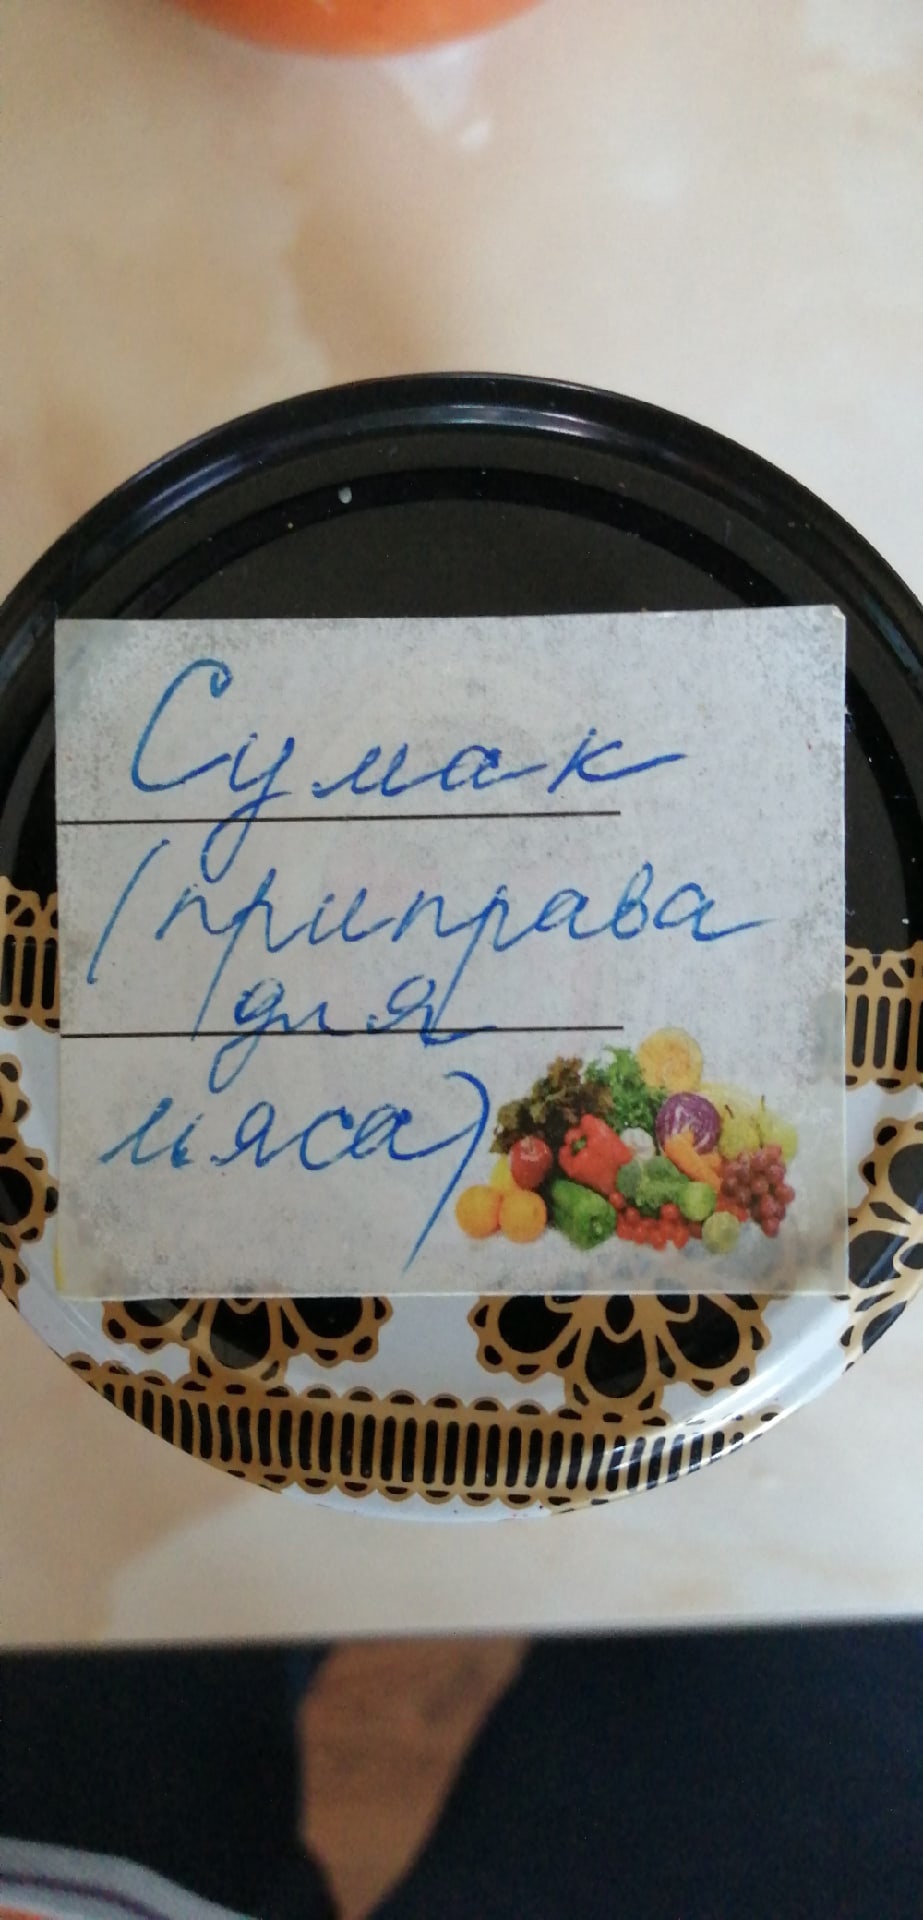 Сумак
(приправа
для
мяса)